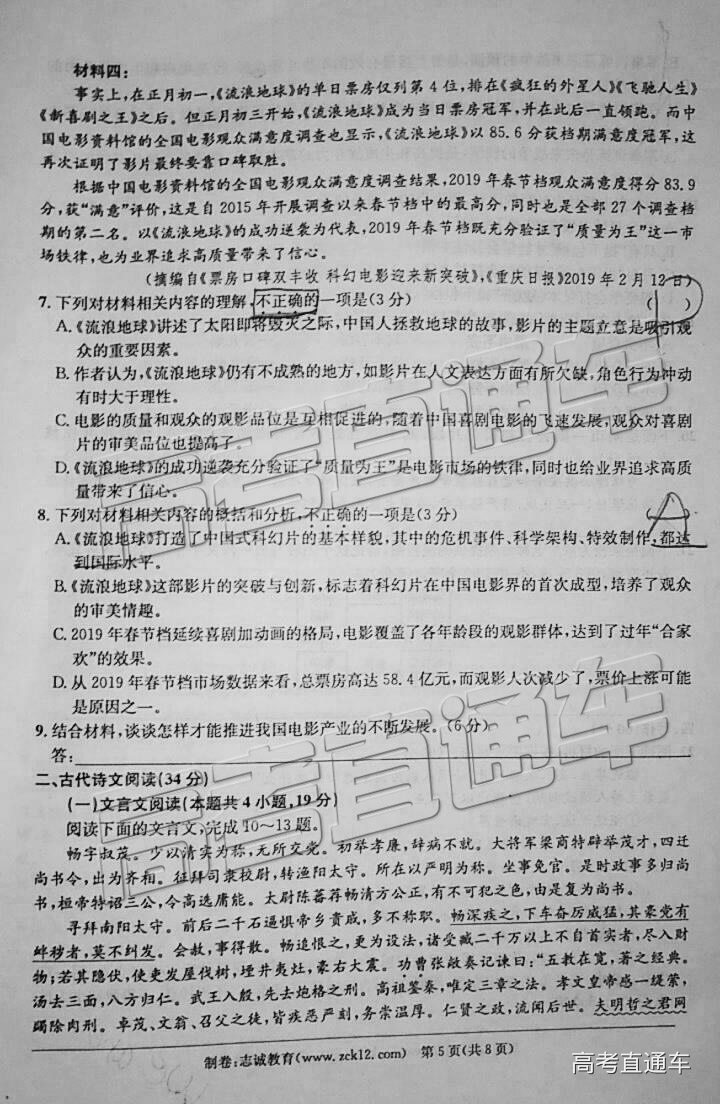 材料四：
事实上，在正月初一，《流浪地球》的单日票房仅列第 4 位，排在《疯狂的外星人》《飞驰人生》
《新喜剧之王》之后。但正月初三开始，《流浪地球》成为当日票房冠军，并在此后一直领跑。而中
国电影资料馆的全国电影观众满意度调查也显示，《流浪地球》以 85.6 分获档期满意度冠军，这
再次证明了影片最终要靠口碑取胜。
根据中国电影资料馆的全国电影观众满意度调查结果，2019 年春节档观众满意度得分 83.9
分，获“满意”评价，这是自 2015 年开展调查以来春节档中的最高分，同时也是全部 27 个调查档
期的第二名。以《流浪地球》的成功逆袭为代表，2019 年春节档既充分验证了“质量为王”这一市
场铁律，也为业界追求高质量带来了信心。
（摘编自《票房口碑双丰收 科幻电影迎来新突破》，《重庆日报》2019 年 2 月 12 日）
7. 下列对材料相关内容的理解，不正确的一项是（3 分） （ ）
A.《流浪地球》讲述了太阳即将毁灭之际，中国人拯救地球的故事，影片的主题立意是吸引观
众的重要因素。
B. 作者认为，《流浪地球》仍有不成熟的地方，如影片在人文表达方面有所欠缺，角色行为冲动
有时大于理性。
C. 电影的质量和观众的观影品位是互相促进的，随着中国喜剧电影的飞速发展，观众对喜剧
片的审美品位也提高了。
D.《流浪地球》的成功逆袭充分验证了“质量为王”是电影市场的铁律，同时也给业界追求高质
量带来了信心。
8. 下列对材料相关内容的概括和分析，不正确的一项是（3 分） A
A.《流浪地球》打造了中国式科幻片的基本样貌，其中的危机事件、科学架构、特效制作，都达
到国际水平。
B.《流浪地球》这部影片的突破与创新，标志着科幻片在中国电影界的首次成型，培养了观众
的审美情趣。
C. 2019 年春节档延续喜剧加动画的格局，电影覆盖了各年龄段的观影群体，达到了过年“合家
欢”的效果。
D. 从 2019 年春节档市场数据来看，总票房高达 58.4 亿元，而观影人次减少了，票价上涨可能
是原因之一。
9. 结合材料，谈谈怎样才能推进我国电影产业的不断发展。（6 分）
答：
二、古代诗文阅读（34 分）
（一）文言文阅读（本题共 4 小题，19 分）
阅读下面的文言文，完成 10～13 题。
畅字叔茂。少以清实为称，无所交党。初举孝廉，辞病不就。大将军梁商特辟举茂才，四迁
尚书令，出为齐相。征拜司隶校尉，转渔阳太守。所在以严明为称。坐事免官。是时政事多归尚
书，桓帝特诏三公，令高选庸能。太尉陈蕃荐畅清方公正，有不可犯之色，由是复为尚书。
寻拜南阳太守。前后二千石逼惧帝乡贵戚，多不称职。畅深疾之，下车奋厉威猛，其豪党有
衅秽者，莫不纠发。会赦，事得散。畅追恨之，更为设法，诸受臧二千万以上不自首实者，尽入财
物；若其隐伏，使吏发屋伐树，堙井夷灶，豪右大震。功曹张敞奏记谏曰：“五教在宽，著之经典。
汤去三面，八方归仁。武王入殷，先去炮格之刑。高祖鉴秦，唯定三章之法。孝文皇帝感一缇萦，
蠲除肉刑。卓茂、文翁、召父之徒，皆疾恶严刻，务崇温厚。仁贤之政，流闻后世。夫明哲之君网
制卷：志诚教育（www.zck12.com） 第 5 页（共 8 页）
高考直通车
高考直通车
高考直通车